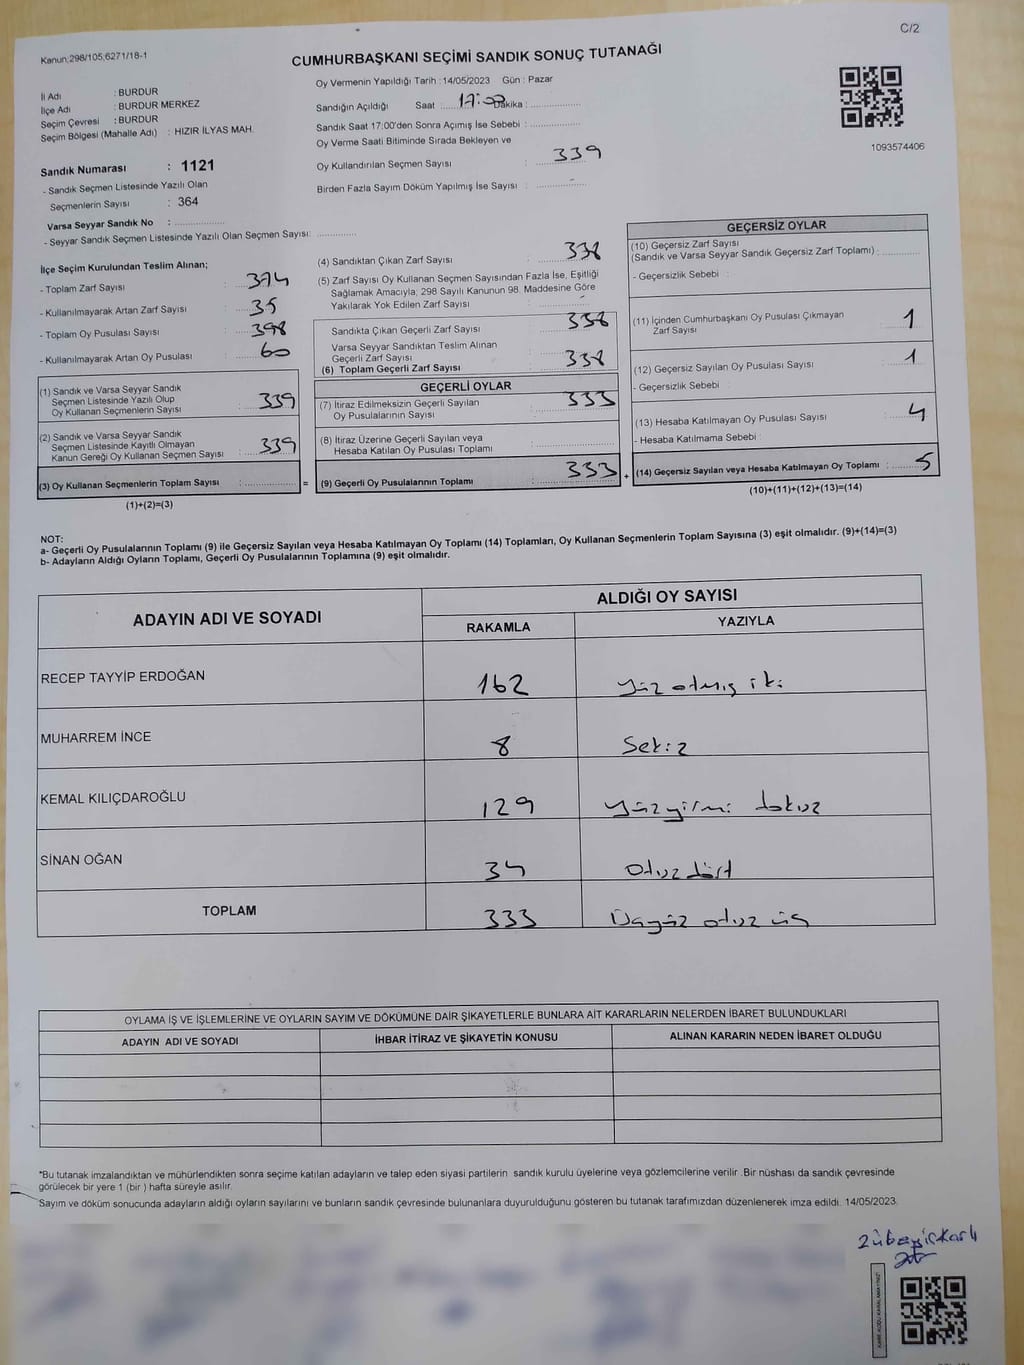 C/2
Kanun:298/105;6271/18-1
CUMHURBAŞKANI SEÇİMİ SANDIK SONUÇ TUTANAĞI
İl Adı : BURDUR
İlçe Adı : BURDUR MERKEZ
Seçim Çevresi : BURDUR
Seçim Bölgesi (Mahalle Adı) : HIZIR İLYAS MAH.
Sandık Numarası : 1121
- Sandık Seçmen Listesinde Yazılı Olan
Seçmenlerin Sayısı : 364
Varsa Seyyar Sandık No : ....................
- Seyyar Sandık Seçmen Listesinde Yazılı Olan Seçmen Sayısı: ..............
Oy Vermenin Yapıldığı Tarih :14/05/2023 Gün : Pazar
Sandığın Açıldığı Saat 17:00 Dakika : ..................
Sandık Saat 17:00'den Sonra Açımış İse Sebebi : ..................
Oy Verme Saati Bitiminde Sırada Bekleyen ve
Oy Kullandırılan Seçmen Sayısı : 339
Birden Fazla Sayım Döküm Yapılmış İse Sayısı : ..................
1093574406
İlçe Seçim Kurulundan Teslim Alınan;
- Toplam Zarf Sayısı : 374
- Kullanılmayarak Artan Zarf Sayısı : 35
- Toplam Oy Pusulası Sayısı : 398
- Kullanılmayarak Artan Oy Pusulası : 60
(1) Sandık ve Varsa Seyyar Sandık
Seçmen Listesinde Yazılı Olup
Oy Kullanan Seçmenlerin Sayısı : 339
(2) Sandık ve Varsa Seyyar Sandık
Seçmen Listesinde Kayıtlı Olmayan
Kanun Gereği Oy Kullanan Seçmen Sayısı : 339
(3) Oy Kullanan Seçmenlerin Toplam Sayısı : ..............
(1)+(2)=(3)
=
(4) Sandıktan Çıkan Zarf Sayısı : 338
(5) Zarf Sayısı Oy Kullanan Seçmen Sayısından Fazla İse, Eşitliği
Sağlamak Amacıyla; 298 Sayılı Kanunun 98. Maddesine Göre
Yakılarak Yok Edilen Zarf Sayısı : ..................
Sandıkta Çıkan Geçerli Zarf Sayısı : 338
Varsa Seyyar Sandıktan Teslim Alınan
Geçerli Zarf Sayısı
(6) Toplam Geçerli Zarf Sayısı : 338
GEÇERLİ OYLAR
(7) İtiraz Edilmeksizin Geçerli Sayılan
Oy Pusulalarının Sayısı : 333
(8) İtiraz Üzerine Geçerli Sayılan veya
Hesaba Katılan Oy Pusulası Toplamı : ..................
(9) Geçerli Oy Pusulalarının Toplamı : 333
+
GEÇERSİZ OYLAR
(10) Geçersiz Zarf Sayısı
(Sandık ve Varsa Seyyar Sandık Geçersiz Zarf Toplamı) : ..............
- Geçersizlik Sebebi :
(11) İçinden Cumhurbaşkanı Oy Pusulası Çıkmayan
Zarf Sayısı : 1
(12) Geçersiz Sayılan Oy Pusulası Sayısı : 1
- Geçersizlik Sebebi :
(13) Hesaba Katılmayan Oy Pusulası Sayısı : 4
- Hesaba Katılmama Sebebi :
(14) Geçersiz Sayılan veya Hesaba Katılmayan Oy Toplamı : 5
(10)+(11)+(12)+(13)=(14)
NOT:
a- Geçerli Oy Pusulalarının Toplamı (9) ile Geçersiz Sayılan veya Hesaba Katılmayan Oy Toplamı (14) Toplamları, Oy Kullanan Seçmenlerin Toplam Sayısına (3) eşit olmalıdır. (9)+(14)=(3)
b- Adayların Aldığı Oyların Toplamı, Geçerli Oy Pusulalarının Toplamına (9) eşit olmalıdır.
ADAYIN ADI VE SOYADI ALDIĞI OY SAYISI
RAKAMLA YAZIYLA
RECEP TAYYİP ERDOĞAN 162 yüz atmış iki
MUHARREM İNCE 8 Sekiz
KEMAL KILIÇDAROĞLU 129 yüzyirmi dokuz
SİNAN OĞAN 34 Otuz dört
TOPLAM 333 Üçyüz otuz üç
OYLAMA İŞ VE İŞLEMLERİNE VE OYLARIN SAYIM VE DÖKÜMÜNE DAİR ŞİKAYETLERLE BUNLARA AİT KARARLARIN NELERDEN İBARET BULUNDUKLARI
ADAYIN ADI VE SOYADI İHBAR İTİRAZ VE ŞİKAYETİN KONUSU ALINAN KARARIN NEDEN İBARET OLDUĞU
*Bu tutanak imzalandıktan ve mühürlendikten sonra seçime katılan adayların ve talep eden siyasi partilerin sandık kurulu üyelerine veya gözlemcilerine verilir .Bir nüshası da sandık çevresinde
görülecek bir yere 1 (bir ) hafta süreyle asılır.
Sayım ve döküm sonucunda adayların aldığı oyların sayılarını ve bunların sandık çevresinde bulunanlara duyurulduğunu gösteren bu tutanak tarafımızdan düzenlenerek imza edildi. 14/05/2023